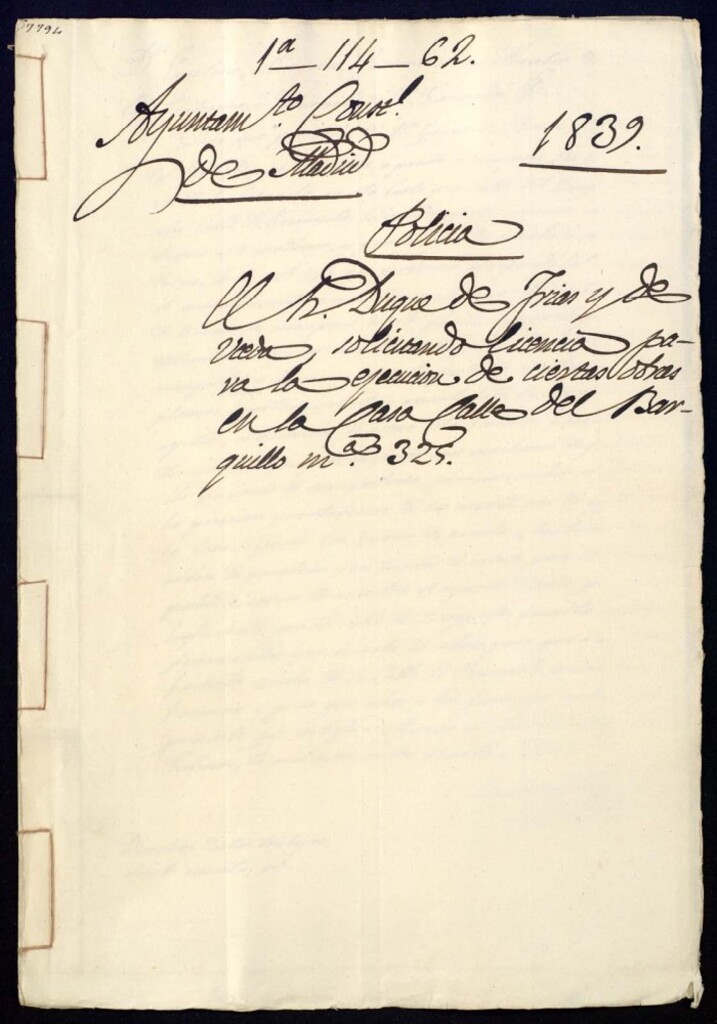 1ª — 114 — 62.
Ayuntam.to Const.l
de Madrid
1839.
Policia
El Sr. Duque de Frias y de
Uceda, solicitando licencia pa-
ra la ejecucion de ciertas obras
en la Casa Calle del Bar-
quillo mª.